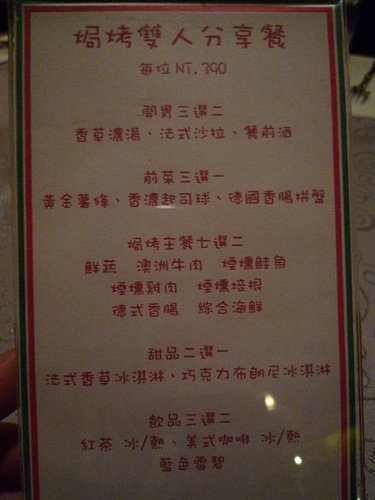 焗烤雙人分享餐
每位NT.390
開胃三選二
香草濃湯、法式沙拉、餐前酒
前菜三選一
黃金薯條、香濃起司球、德國香腸拼盤
焗烤主餐七選二
鮮蔬 澳洲牛肉 煙燻鮭魚
煙燻雞肉 煙燻培根
德式香腸 綜合海鮮
甜品二選一
法式香草冰淇淋、巧克力布朗尼冰淇淋
飲品三選二
紅茶 冰/熱、美式咖啡 冰/熱
藍色雪碧